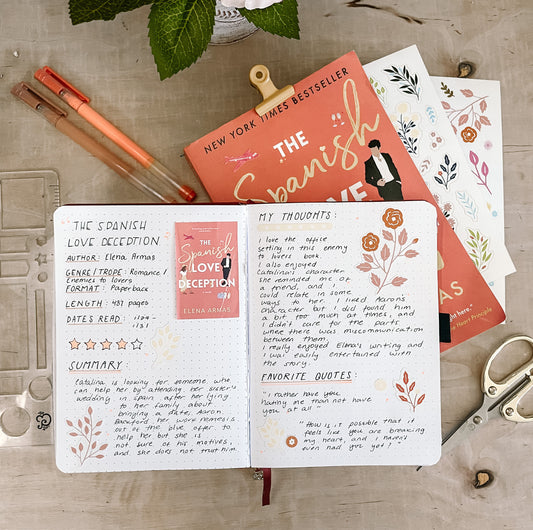 NEW YORK TIMES BESTSELLER
THE
Spanish
LOVE
THE SPANISH
LOVE DECEPTION
AUTHOR: Elena Armas
GENRE/TROPE: Romance/
Enemies to lovers
FORMAT: Paperback
LENGTH: 487 pages
DATES READ:
SUMMARY
Catalina is looking for someone who
can help her by attending her sister's
wedding in Spain after her lying
to her family about
bringing a date. Aaron
Backford her work nemesis
out of the blue offer to
help her but she is
not sure of his motives,
and she does not trust him.
THE
Spanish
LOVE
DECEPTION
ELENA ARMAS
MY THOUGHTS:
I love the office
setting in this enemy
to lovers book.
I also enjoyed
Catalina's character
she reminded me of
a friend, and I
could relate in some
ways to her. I liked Aaron's
character but I did found him
a bit too much at times, and
I didn't care for the parts
where there was miscommunication
between them.
I really enjoyed Elena's writing and
I was easily entertained with
the story.
FAVORITE QUOTES:
"I rather have you
hating me than not have
you at all"
"How is it possible that it
feels like you are breaking
my heart, and I haven't
even had you yet?"